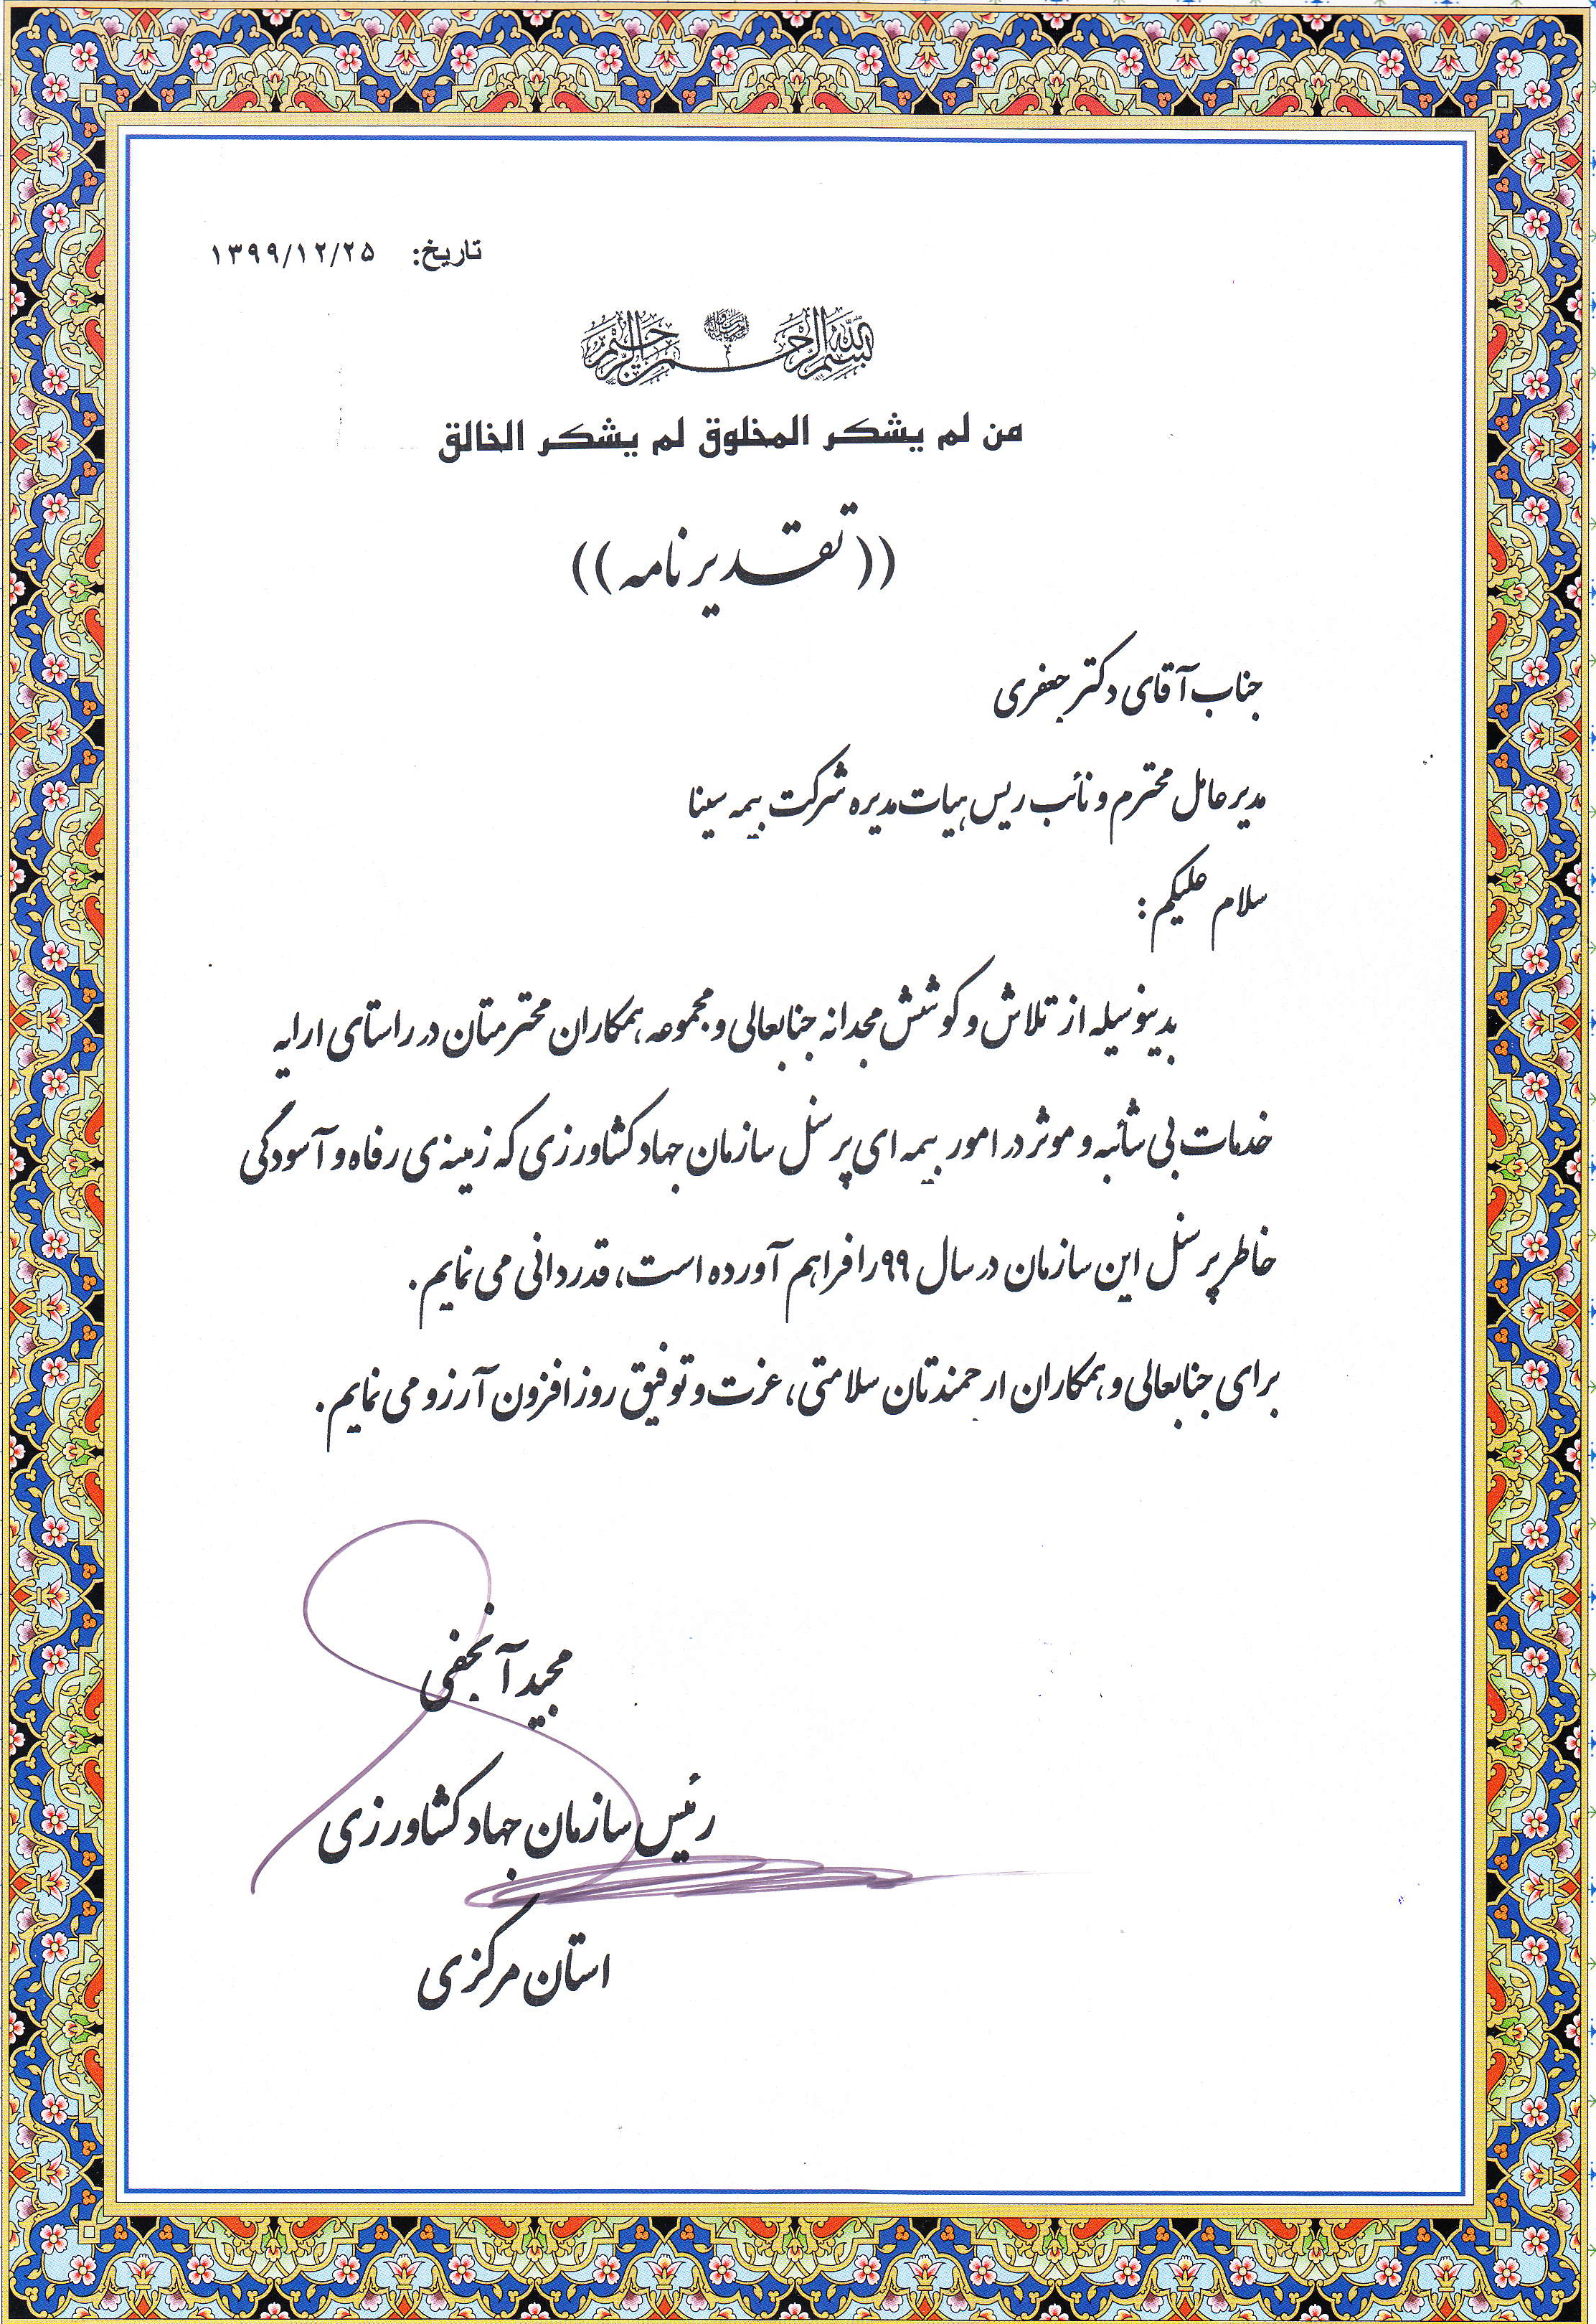 تاریخ: ۱۳۹۹/۱۲/۲۵
بسم الله الرحمن الرحیم
من لم یشکر المخلوق لم یشکر الخالق
((تقدیرنامه))
جناب آقای دکتر جعفری
مدیرعامل محترم و نائب ریس هیات مدیره شرکت بیمه سینا
سلام علیکم :
بدینوسیله از تلاش و کوشش مجدانه جنابعالی و مجموعه همکاران محترمتان در راستای ارایه
خدمات بی شائبه و موثر در امور بیمه ای پرسنل سازمان جهاد کشاورزی که زمینه ی رفاه و آسودگی
خاطر پرسنل این سازمان در سال ۹۹ را فراهم آورده است، قدردانی می نمایم .
برای جنابعالی و همکاران ارجمندتان سلامتی، عزت و توفیق روزافزون آرزو می نمایم .
مجید آنجفی
رئیس سازمان جهاد کشاورزی
استان مرکزی